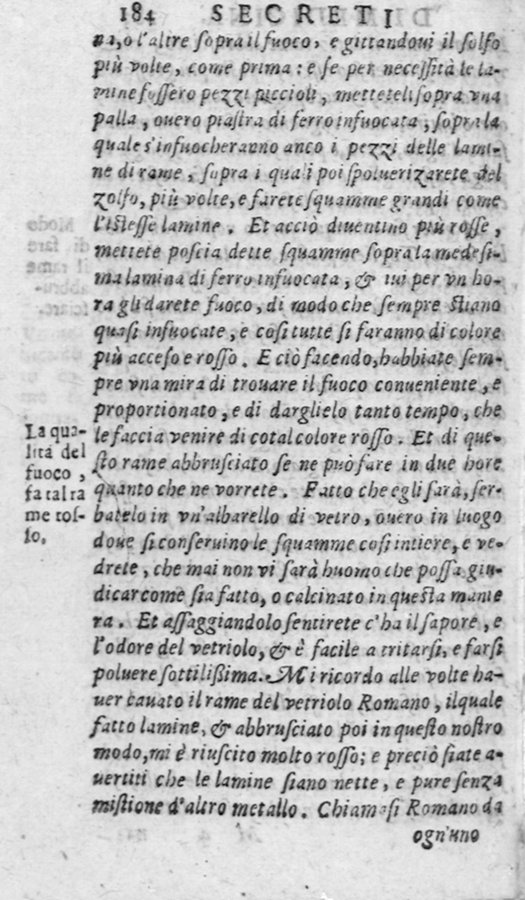 184 SECRETI
na, o l'altre sopra il fuoco, e gittandoui il solfo
più volte, come prima: e se per necessità le la-
mine fussero pezzi piccioli, metteteli sopra vna
palla, ouero piastra di ferro infuocata, sopra la
quale s'infuocheranno anco i pezzi delle lami-
ne di rame, sopra i quali poi spoluerizarete del
zolfo, più volte, e farete squamme grandi come
l'istesse lamine. Et acciò diuentino più rosse,
mettete poscia dette squamme sopra la medesi-
ma lamina di ferro infuocata, & iui per vn ho-
ra gli darete fuoco, di modo che sempre stiano
quasi infuocate, e così tutte si faranno di colore
più acceso e rosso. E ciò facendo, habbiate sem-
pre vna mira di trouare il fuoco conueniente, e
proportionato, e di darglielo tanto tempo, che
le faccia venire di cotal colore rosso. Et di que-
sto rame abbrusciato se ne può fare in due hore
quanto che ne vorrete. Fatto che egli sarà, ser-
batelo in vn'albarello di vetro, ouero in luogo
doue si conseruino le squamme così intiere, e ve-
drete, che mai non vi sarà huomo che possa giu-
dicar come sia fatto, o calcinato in questa manie
ra. Et assaggiandolo sentirete c'ha il sapore, e
l'odore del vetriolo, & è facile a tritarsi, e farsi
poluere sottilißima. Mi ricordo alle volte ha-
uer cauato il rame del vetriolo Romano, ilquale
fatto lamine, & abbrusciato poi in questo nostro
modo, mi è riuscito molto rosso; e perciò siate a-
uertiti che le lamine siano nette, e pure senza
mistione d'altro metallo. Chiamasi Romano da
ogn'uno
La qua-
lità del
fuoco,
fa tal ra
me ros-
so.